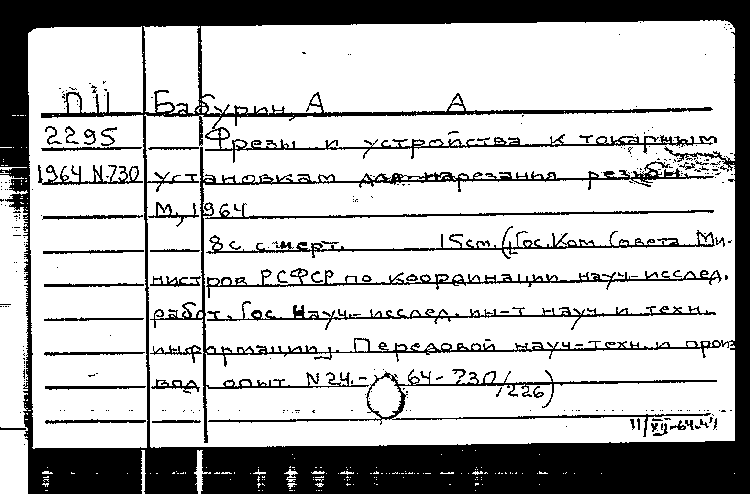 П11 Бабурин, А А
2295 Фрезы и устройства к токарным
1964 N.730 установкам для нарезания резьбы.
М., 1964
8с. с черт. 15см. (Гос. Ком. Совета Ми-
нистров РСФСР по координации науч-исслед.
работ. Гос. Науч.-исслед. ин-т науч. и техн.
информации). Передовой науч-техн. и произ
вод. опыт. N24.- 64-730/226)